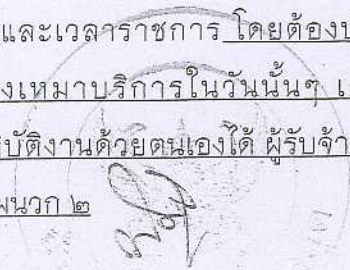 และเวลาราชการ โดยต้องป
งเหมาบริการในวันนั้นๆ เ
บัติงานด้วยตนเองได้ ผู้รับจ้า
ผนวก ๒